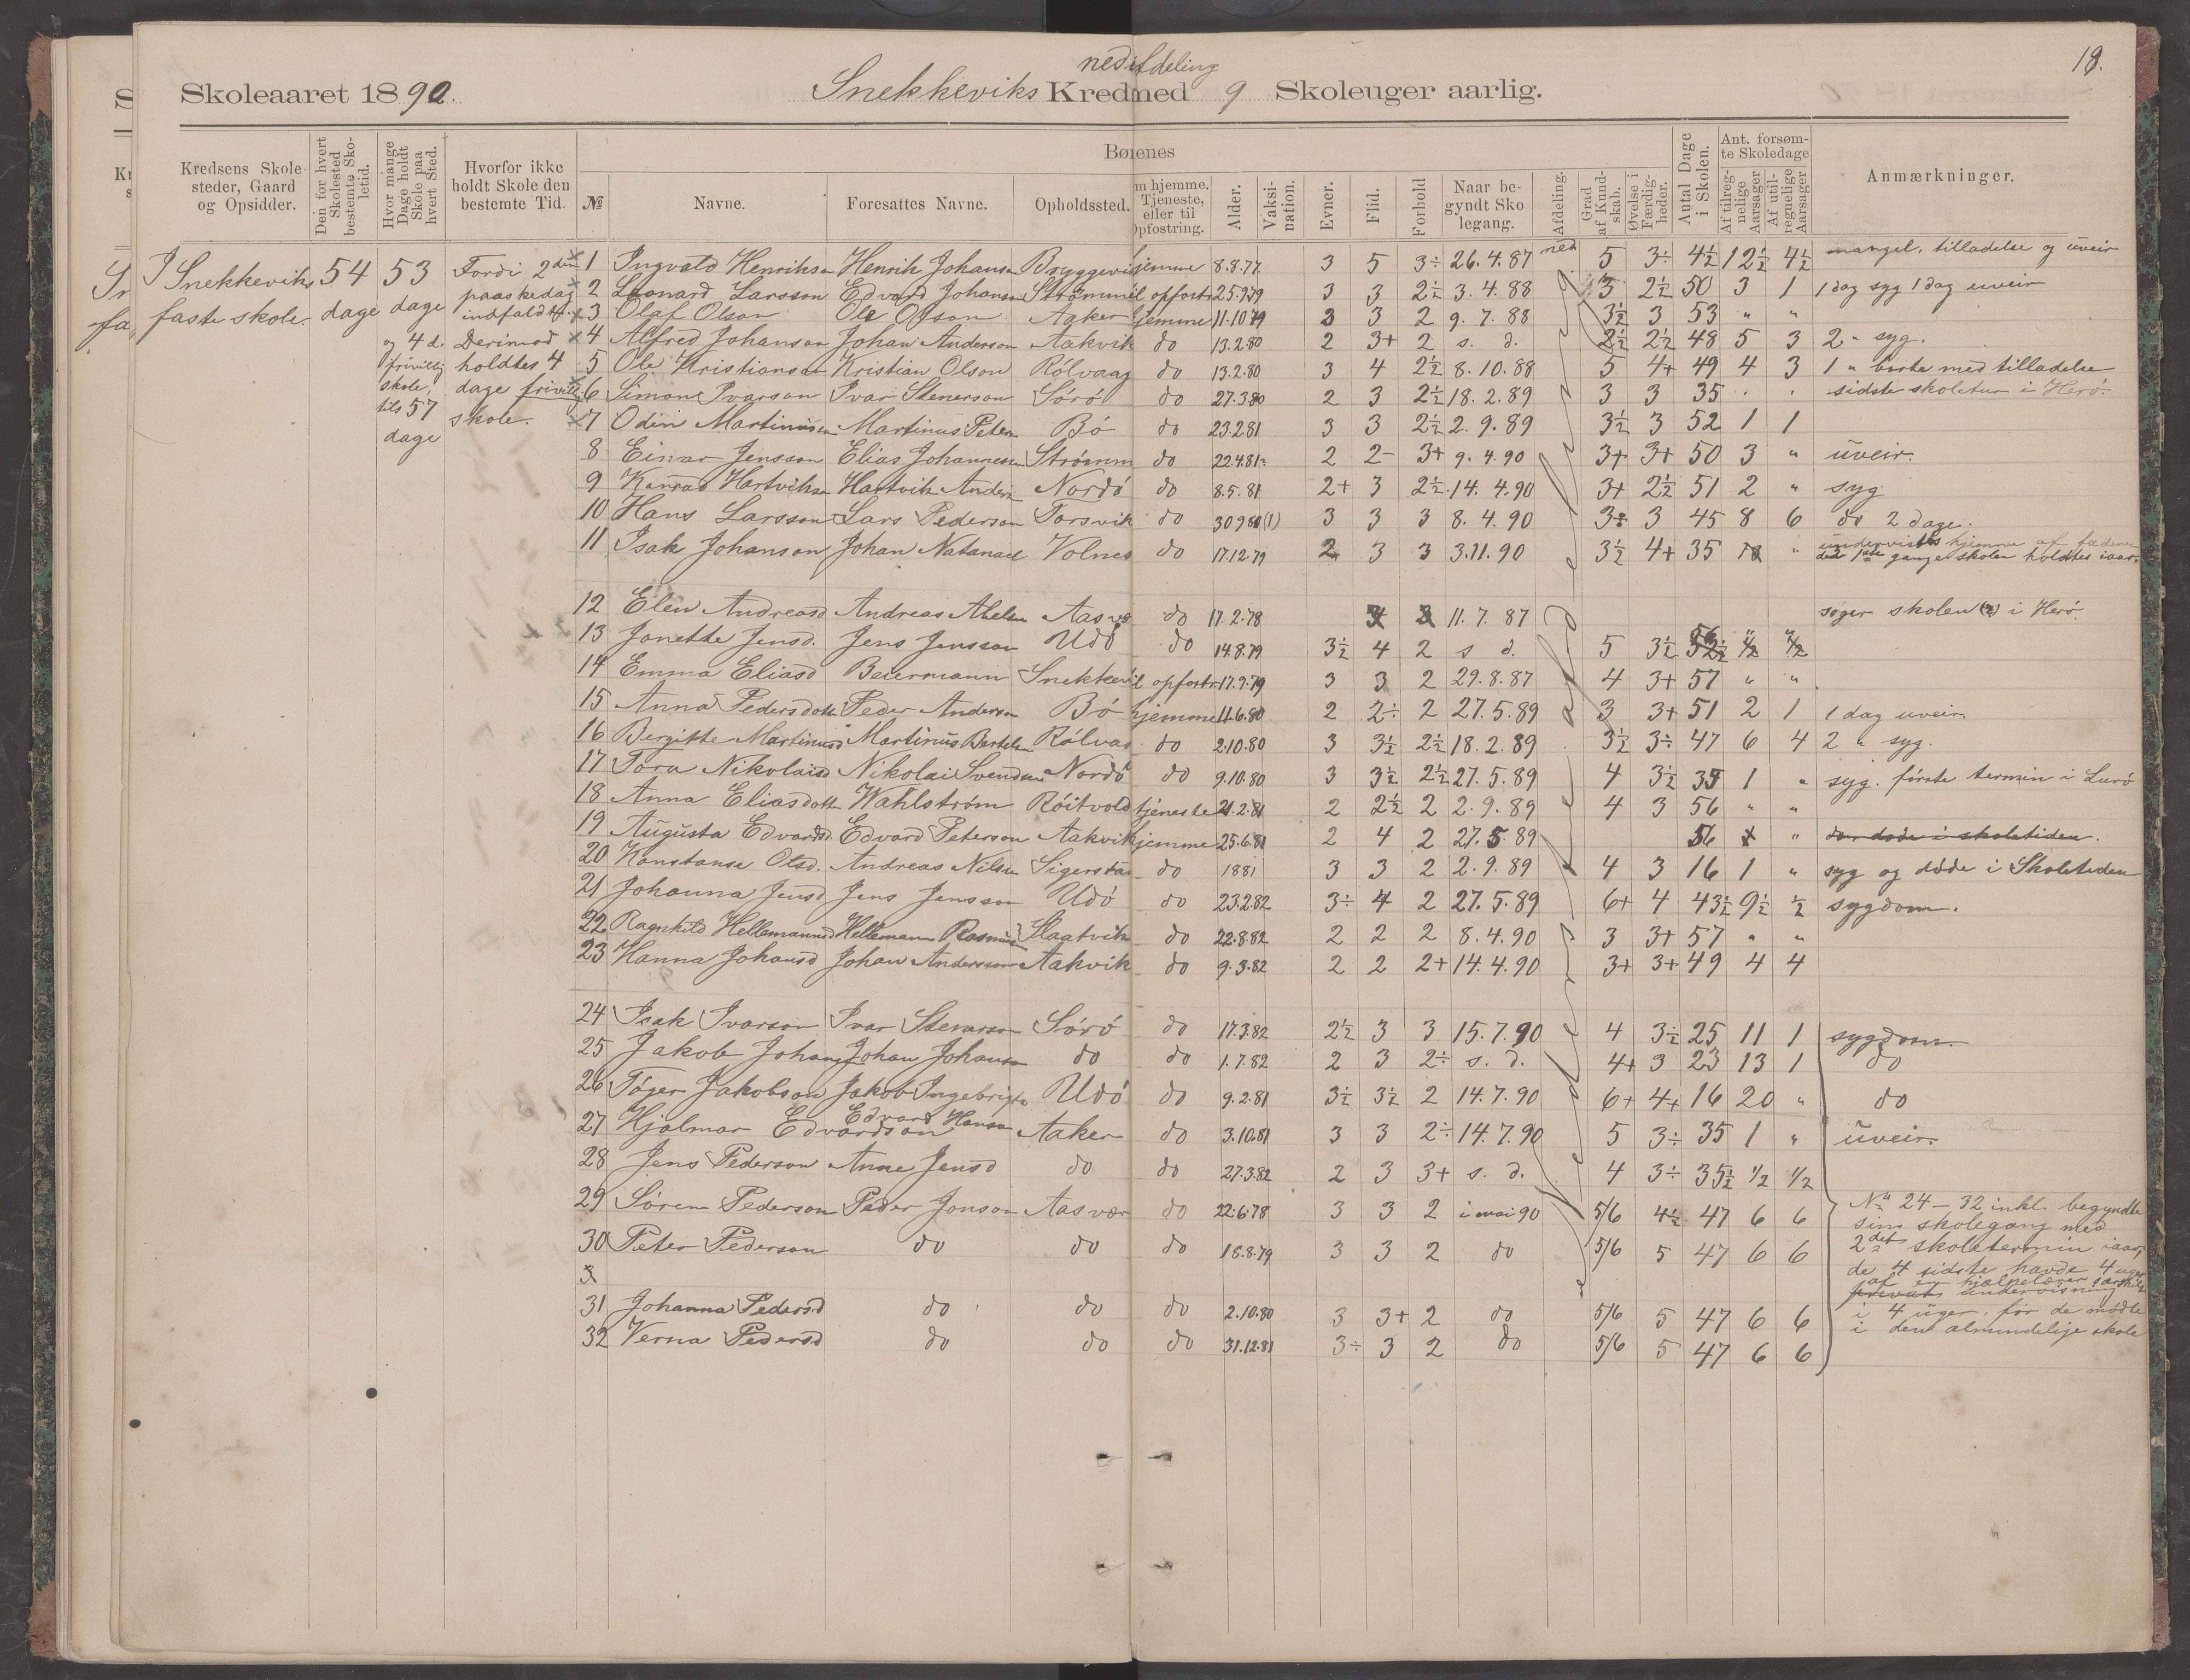 18.
nedafdeling
Skoleaaret 1890. Snekkeviks Kred med 9 Skoleuger aarlig.
Kredsens Skolesteder, Gaard og Opsidder. Den for hvert Skolested bestemte Skoletid. Hvor mange Dage holdt Skole paa hvert Sted. Hvorfor ikke holdt Skole den bestemte Tid.
Børnenes
№ Navne. Foresattes Navne. Opholdssted. m hjemme. Tjeneste, eller til Opfostring. Alder. Vaksination. Evner. Flid. Forhold Naar begyndt Skolegang. Afdeling. Grad af Kundskab. Øvelse i Færdigheder. Antal Dage i Skolen. Ant. forsømte Skoledage Af tilregnelige Aarsager Af utilregnelige Aarsager Anmærkninger.
I Snekkeviks faste skole. 54 dage 53 dage og 4 d. frivillig skole, tils 57 dage
Fordi 2den paaskedag indfaldt. Derimod holdtes 4 dage frivillig skole.
nedreafdeling
1 Ingvald Henrikson Henrik Johanson Bryggevik hjemme 8.8.77 3 5 3÷ 26.4.87 ned 5 3÷ 4½ 12½ 4½ mangel. tilladelse og uveir
2 Leonard Larsson Edvard Johanson Strømm til opfostr 25.9.79 3 3 2½ 3.4.88 3 2½ 50 3 1 1 dag syg 1 dag uveir
3 Olaf Olson Ole Olson Aaker hjemme 11.10.79 3 3 2 9.7.88 3½ 3 53 " "
4 Alfred Johanson Johan Anderson Aakvik do 13.2.80 2 3+ 2 s. d. 2½ 2½ 48 5 3 2 " syg.
5 Ole Kristianson Kristian Olson Rölvaag do 13.2.80 3 4 2½ 8.10.88 5 4+ 49 4 3 1 " borte med tilladelse
6 Simon Ivarson Ivar Stenerson Sörö do 27.3.80 2 3 2½ 18.2.89 3 3 35 . . sidste skoletur i Herö.
7 Odin Martinusen Martinus Peters Bö do 23.2.81 3 3 2½ 2.9.89 3½ 3 52 1 1
8 Einar Jensson Elias Johannesen Strömm do 22.4.81 2 2- 3+ 9.4.90 3+ 3+ 50 3 " uveir.
9 Konrad Hartvikson Hartvik Anders Nordö do 8.5.81 2+ 3 2½ 14.4.90 3+ 2½ 51 2 " syg
10 Hans Larsson Lars Pederson Forsvik do 30.9.80 (1) 3 3 3 8.4.90 3+ 3 45 8 6 do 2 dage.
11 Isak Johanson Johan Natanael Volnes do 17.12.79 2 3 3 3.11.90 3½ 4+ 35 " undervistes hjemme af faderen den 1ste gang skolen holdtes iaar.
12 Elen Andreasd Andreas Abelsen Aasvær do 17.2.78 11.7.87 söger skolen i Herö
13 Janette Jensd. Jens Jensson Udö do 14.8.79 3½ 4 2 s d. 5 3½ 56 " "
14 Emma Eliasd Beiermann Snekkevik til opfostr. 17.9.79 3 3 2 29.8.87 4 3+ 57 " "
15 Anna Pedersdott Peder Anderson Bö hjemme 11.6.80 2 2÷ 2 27.5.89 3 3+ 51 2 1 1 dag uveir
16 Bergitte Martinusd Martinus Bertelsen Rölvaa do 2.10.80 3 3½ 2½ 18.2.89 3½ 3÷ 47 6 4 2 " syg.
17 Tora Nikolaisd Nikolai Svendsen Nordö do 9.10.80 3 3½ 2½ 27.5.89 4 3½ 35 1 " syg. förste termin i Lurö
18 Anna Eliasdott Wahlström Röitvold tjeneste 21.2.81 2 2½ 2 2.9.89 4 3 56 " "
19 Augusta Edvardsd. Edvard Peterson Aakvik hjemme 25.6.81 2 4 2 27.5.89 56 " döde i skoletiden.
20 Konstanse Olsd. Andreas Nilsen Sigerstad do 1881 3 3 2 2.9.89 4 3 16 1 " syg og döde i Skoletiden
21 Johanna Jensd Jens Jensson Udö do 23.2.82 3÷ 4 2 27.5.89 6+ 4 43½ 9½ ½ sygdom.
22 Ragnhild Hellemannsd Hellemann Rasmus Slaatvik do 22.8.82 2 2 2 8.4.90 3 3+ 57 " "
23 Hanna Johansd Johan Andersson Aakvik do 9.3.82 2 2 2+ 14.4.90 3+ 3+ 49 4 4
24 Isak Ivarson Ivar Stenerson Sörö do 17.3.82 2½ 3 3 15.7.90 4 3½ 25 11 1 sygdom.
25 Jakob Johans Johan Johanson do do 1.7.82 2 3 2÷ s. d. 4+ 3 23 13 1 do
26 Töger Jakobson Jakob Ingebrigts Udö do 9.2.81 3½ 3½ 2 14.7.90 6+ 4+ 16 20 " do
27 Hjalmar Edvardson Edvard Hanson Aaker do 3.10.81 3 3 2÷ 14.7.90 5 3÷ 35 1 " uveir.
28 Jens Pederson Anne Jensd do do 27.3.82 2 3 3+ s. d. 4 3÷ 35½ 1/2 1/2
29 Sören Pederson Peder Jonson Aasvær do 22.6.78 3 3 2 i mai 90 5/6 4½ 47 6 6
30 Peter Pederson do do do 18.8.79 3 3 2 do 5/6 5 47 6 6
31 Johanna Pedersd do do do 2.10.80 3 3+ 2 do 5/6 5 47 6 6
32 Verna Pedersd do do do 31.12.81 3÷ 3 2 do 5/6 5 47 6 6
Nº 24 – 32 inkl. begyndte
sin skolegang med
2det skoletermin iaar,
de 4 sidste havde 4 uger
privat undervisning
af en hjælpelærer
i 4 uger. för de mödte
i den almindelige skole